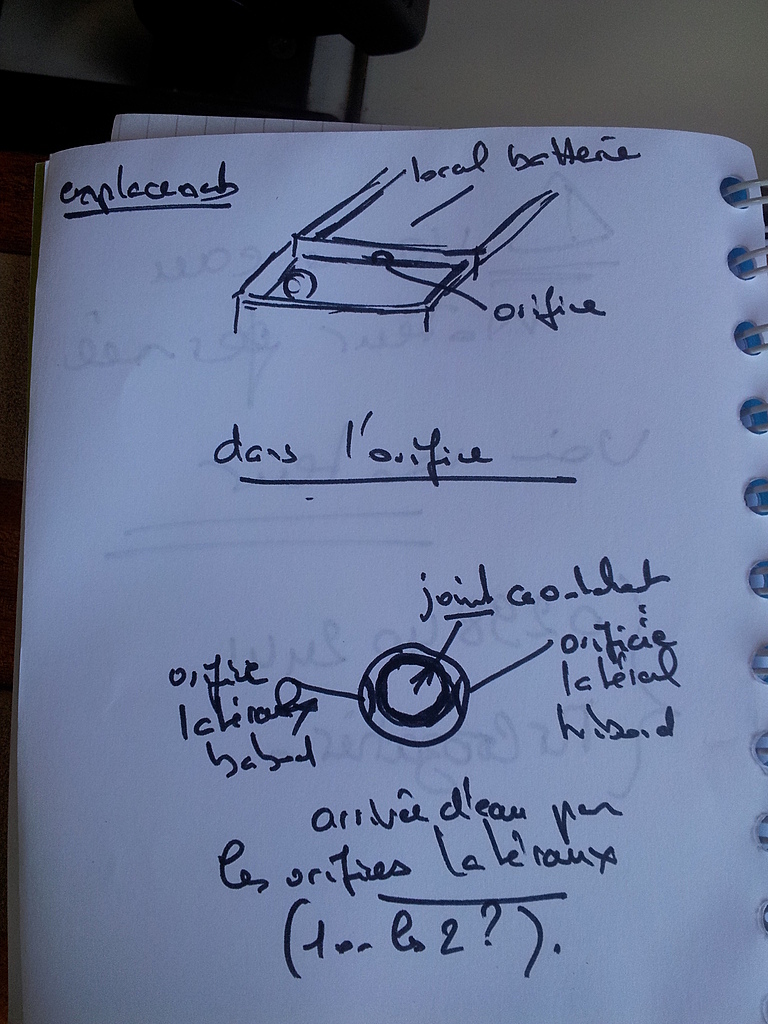 emplacement
local batterie
orifice
dans l'orifice
joint caoutchouc
orifice
latéral
babord
orificie
latéral
tribord
arrivée d'eau par
les orifices latéraux
(1 ou les 2 ?).